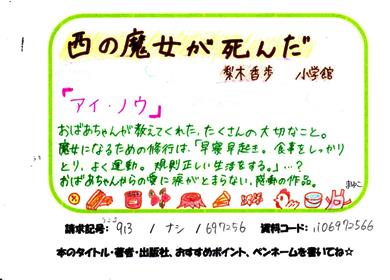 西の魔女が死んだ
梨木香歩 小学館
「アイ・ノウ」
おばあちゃんが教えてくれた、たくさんの大切なこと。
魔女になるための修行は、「早寝早起き。食事をしっかり
とり、よく運動。規則正しい生活をする。」…?
おばあちゃんからの愛に涙がとまらない、感動の作品。
請求記号: 913 / ナシ / 697256 資料コード: 110697256
本のタイトル・著者・出版社、おすすめポイント、ペンネームを書いてね☆